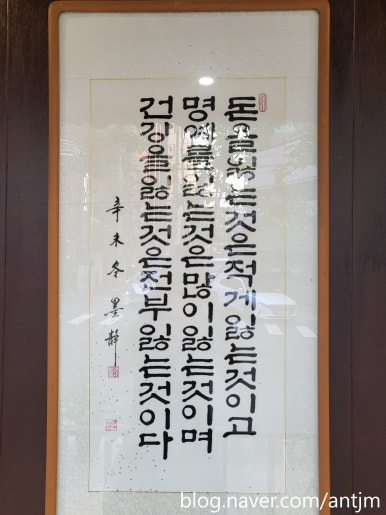 돈을잃는것은적게잃는것이고
명예를잃는것은많이잃는것이며
건강을잃는것은전부잃는것이다
辛未冬墨靜
blog.naver.com/antjm